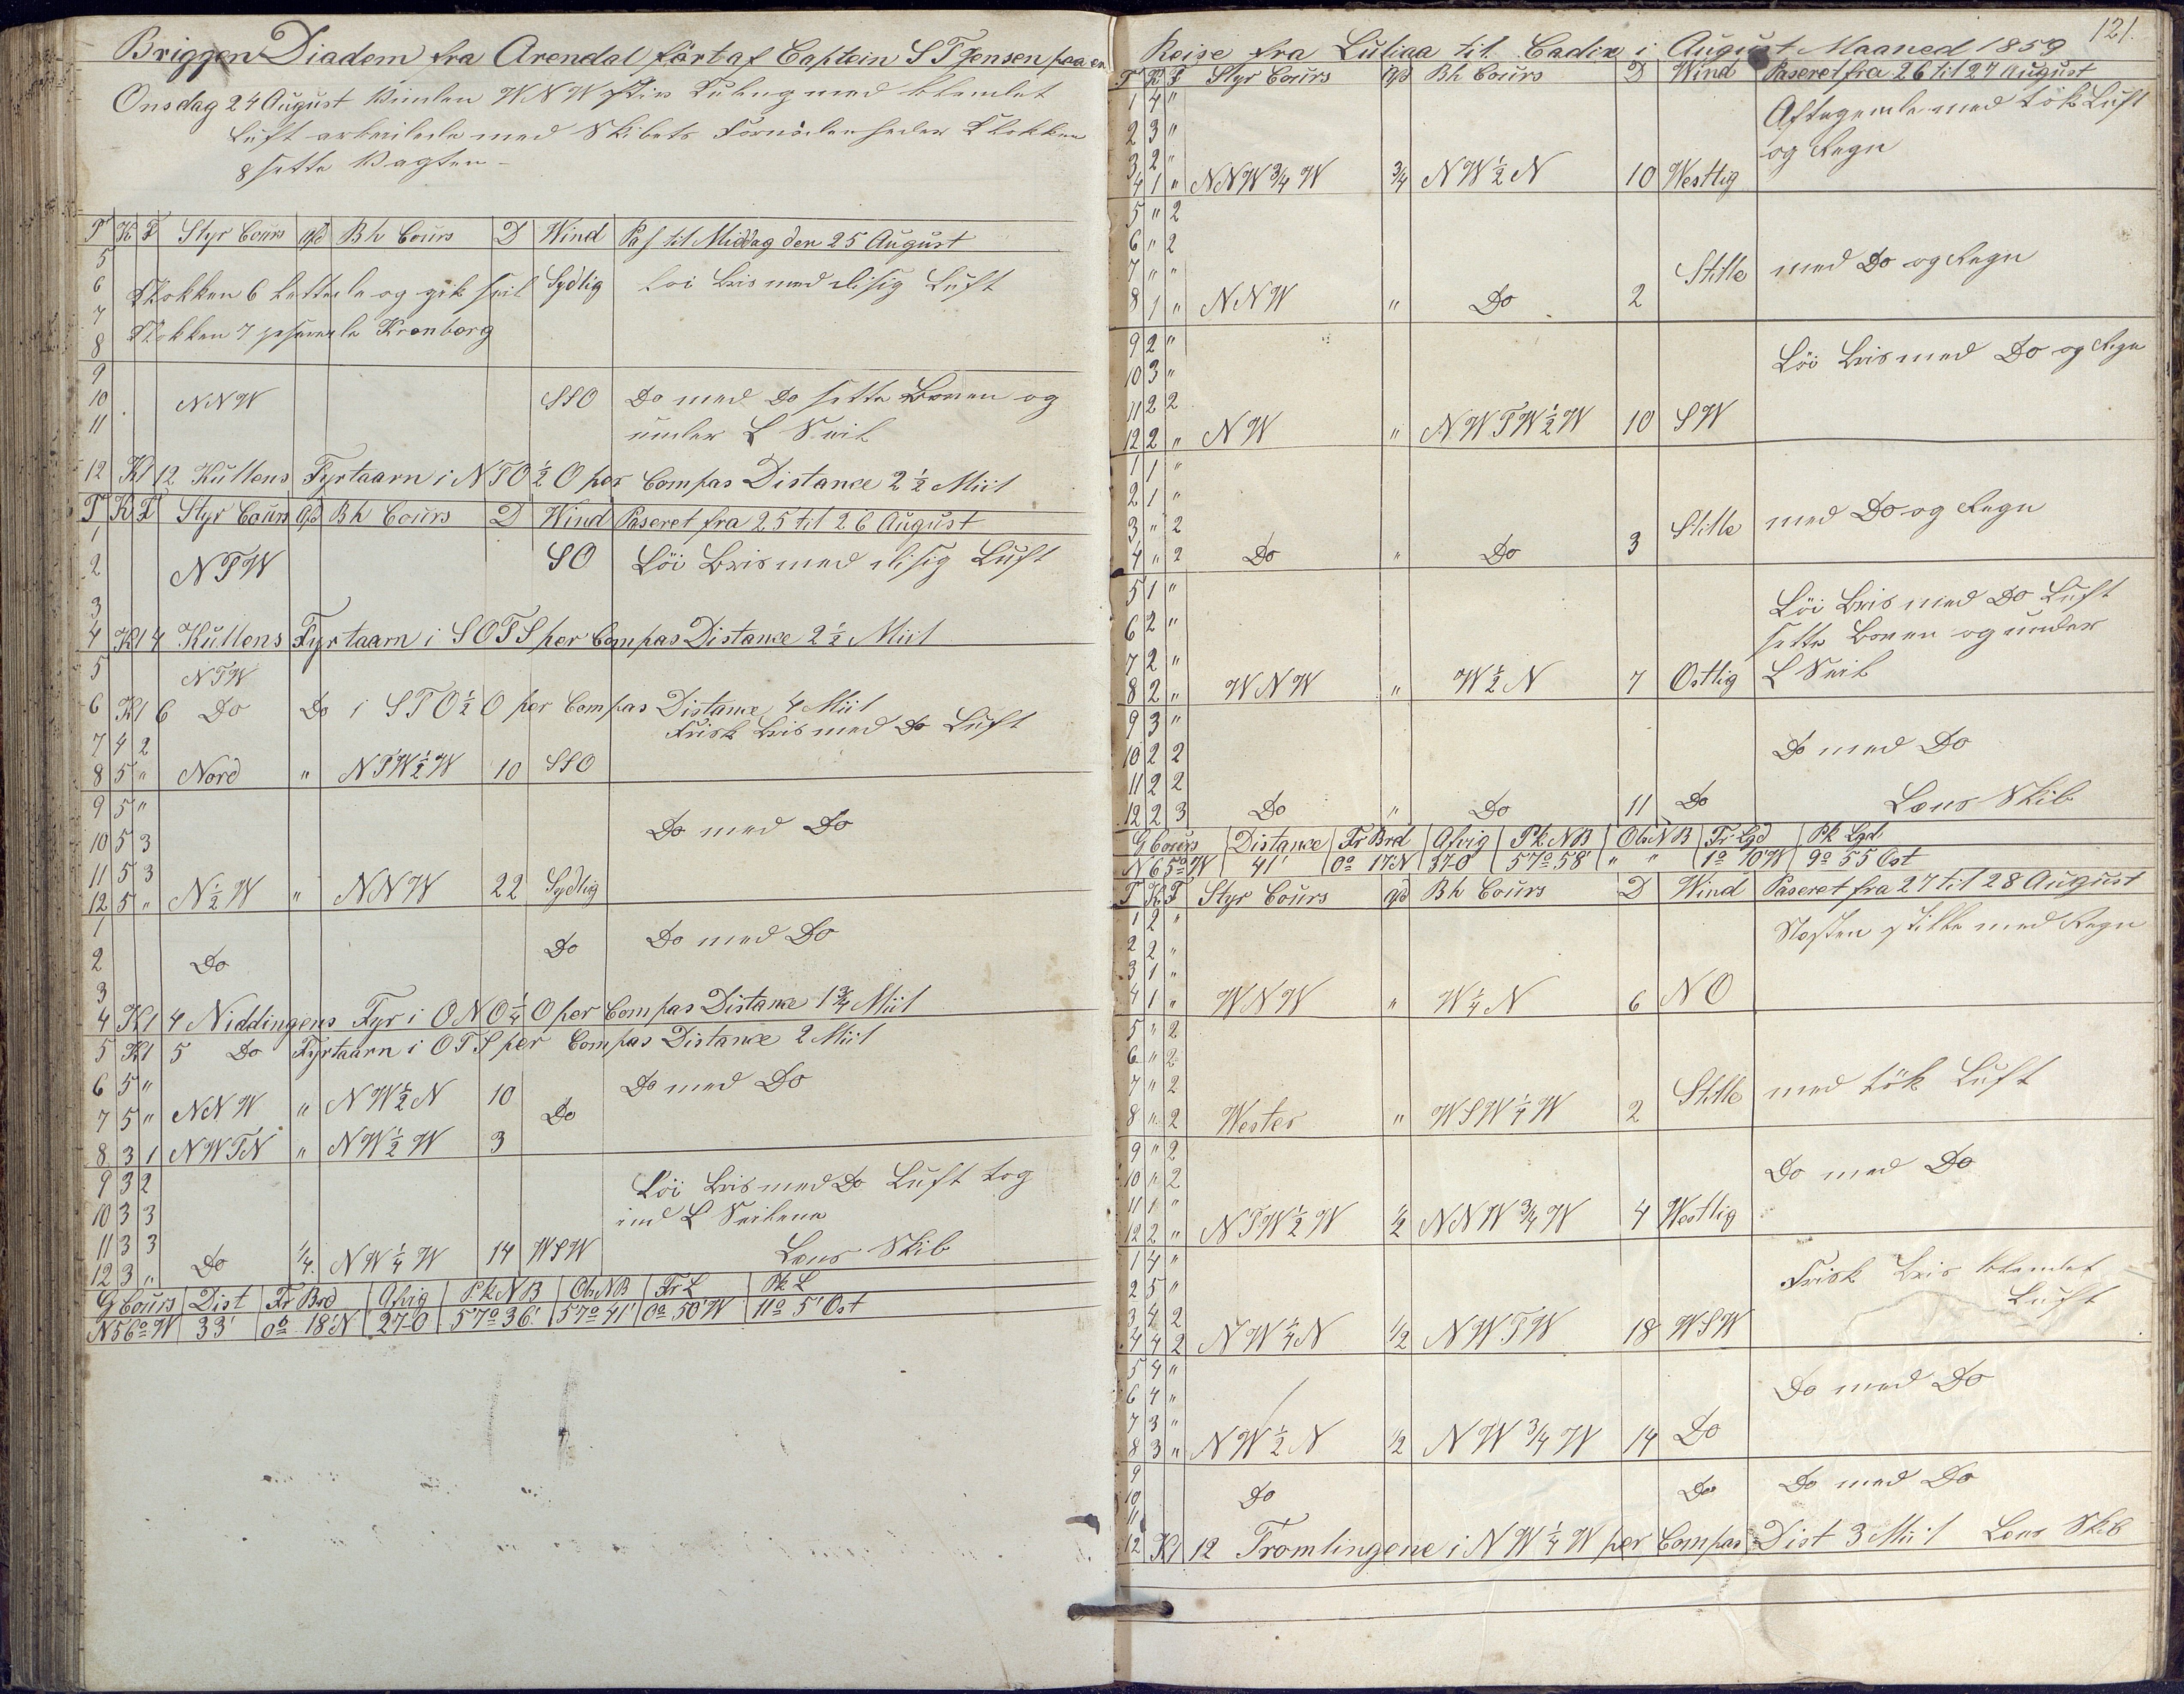 Briggen Diadem fra Arendal fört af Captein S T Jensen paa en
Onsdag 24 August Vinden WNW Stiv Kuling med klemtet
Luft arbeidede med Skibets Fornödenheder Klokken
8 sette Vagten -
T K F Styr Cours Afd Bh Cours D Wind Pas til Middag den 25 August
5
6 Klokken 6 lettede og gik seil Sydlig Löi Bris med disig Luft
7 Klokken 7 passerede Kronborg
8
9
10 NNW SSO Do med Do sette Boven og
11 under L Seil
12 Kl 12 Kullens Fyrtaarn i NTO ½ O per Compas Distance 2 ½ Miil
T K F Styr Cours Afd Bh Cours D Wind Paseret fra 25 til 26 August
1
2 NTW SO Löi Bris med disig Luft
3
4 Kl 4 Kullens Fyrtaarn i SOTS per Compas Distance 2 ½ Miil
5 NTW
6 Kl 6 Do Do i STO ½ O per Compas Distance 4 Miil
Frisk Bris med Do Luft
7 4 2
8 5 " Nord " NTW ½ W 10 SSO
9 5 "
10 5 3 Do med Do
11 5 3
12 5 " N ½ W " NNW 22 Sydlig
1
2 Do Do Do med Do
3
4 Kl 4 Niddingens Fyr i ONO ¼ O per Compas Distance 1 ¾ Miil
5 Kl 5 Do Fyrtaarn i OTS per Compas Distance 2 Miil
6 5 " Do med Do
7 5 " NNW " NW ½ N 10 Do
8 3 1 NWTN " NW ½ W 3
9 3 2 Löi Bris med Do Luft tog
10 3 3 ind L Seilene
11 3 3
12 3 " Do ¼ NW ¼ W 14 WSW Lens Skib
G Cours Dist Fr Brd Afvig Pk NB Obs NB Fr L Pk L
N 56° W 33' 0° 18' N 27 O 57° 36' 57° 41' 0° 50' W 11° 5' Ost
121.
Reise fra Luleaa til Cadix i August Maaned 1859
T K F Styr Cours Afd Bh Cours D Wind Paseret fra 26 til 27 August
1 4 " Aftagende med tök Luft
2 3 " og Regn
3 2 "
4 1 " NNW ¾ W ¾ NW ½ N 10 Westlig
5 " 2
6 " 2
7 " " Stille med Do og Regn
8 1 " NNW " Do 2
9 2 " Löi Bris med Do og Regn
10 3 "
11 2 2
12 2 " NW " NWTW ½ W 10 SW
1 1 "
2 1 "
3 " 2 Stille med Do og Regn
4 " 2 Do " Do 3
5 1 " Löi Bris med Do Luft
6 2 " sette Boven og under
7 2 " L Seil
8 2 " WNW " W ½ N 7 Ostlig
9 3 "
10 2 2 Do med Do
11 2 2
12 2 3 Do " Do 11 Do Lens Skib
G Cours Distance Fr Brd Afvig Pk NB Obs NB Fr Lgd Pk Lgd
N 65° W 41' 0° 17' N 37 O 57° 58' " " 1° 10' W 9° 55 Ost
T K F Styr Cours Afd Bh Cours D Wind Paseret fra 27 til 28 August
1 2 " Næsten stille med Regn
2 2 "
3 1 "
4 1 " WNW " W ¼ N 6 NO
5 " 2
6 " 2
7 " 2 Stille med tök Luft
8 " 2 Wester " WSW ¼ W 2
9 " 2
10 " 2 Do med Do
11 1 "
12 2 " NTW ½ W ½ NNW ¾ W 4 Westlig
1 4 "
2 5 " Frisk Bris klemtet
3 4 2 Luft
4 4 2 NW ¼ N ½ NWTW 18 WSW
5 4 "
6 4 " Do med Do
7 3 "
8 3 " NW ½ N ½ NW ¾ W 14 Do
9
10 Do Do Do med Do
11
12 Kl 12 Tromlingene i NW ¼ W per Compas Dist 3 Miil Lens Skib